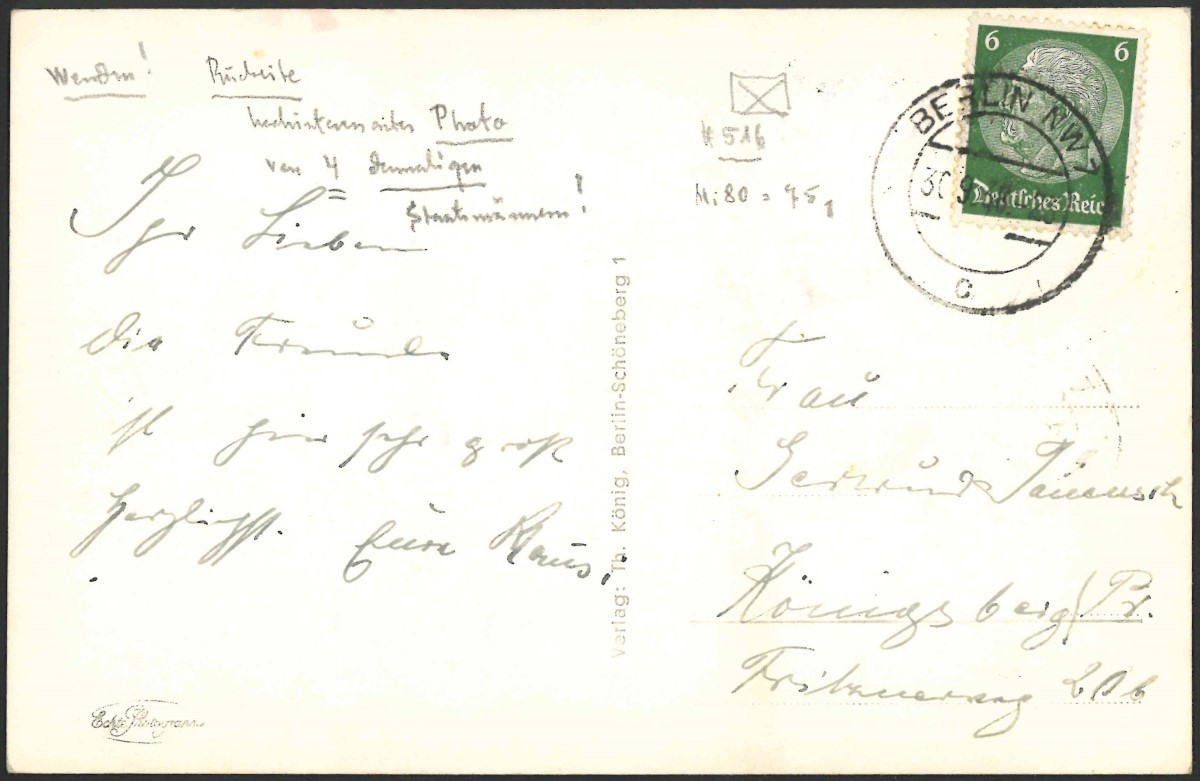 Wenden! Rückseite
hochinteressantes Photo
von 4 damaligen
Staatsmännern!
# 516
Mi 80 = 75,
6 6
Deutsches Reich
BERLIN NW 7
30.9.
c
Ihr Lieben
die Freude
ist hier sehr groß
Herzlichst. Eure Klaus.
Verlag: Th. König, Berlin-Schöneberg 1
Frau
Gertrud
Königsberg/Pr.
20b
Echte Photographie